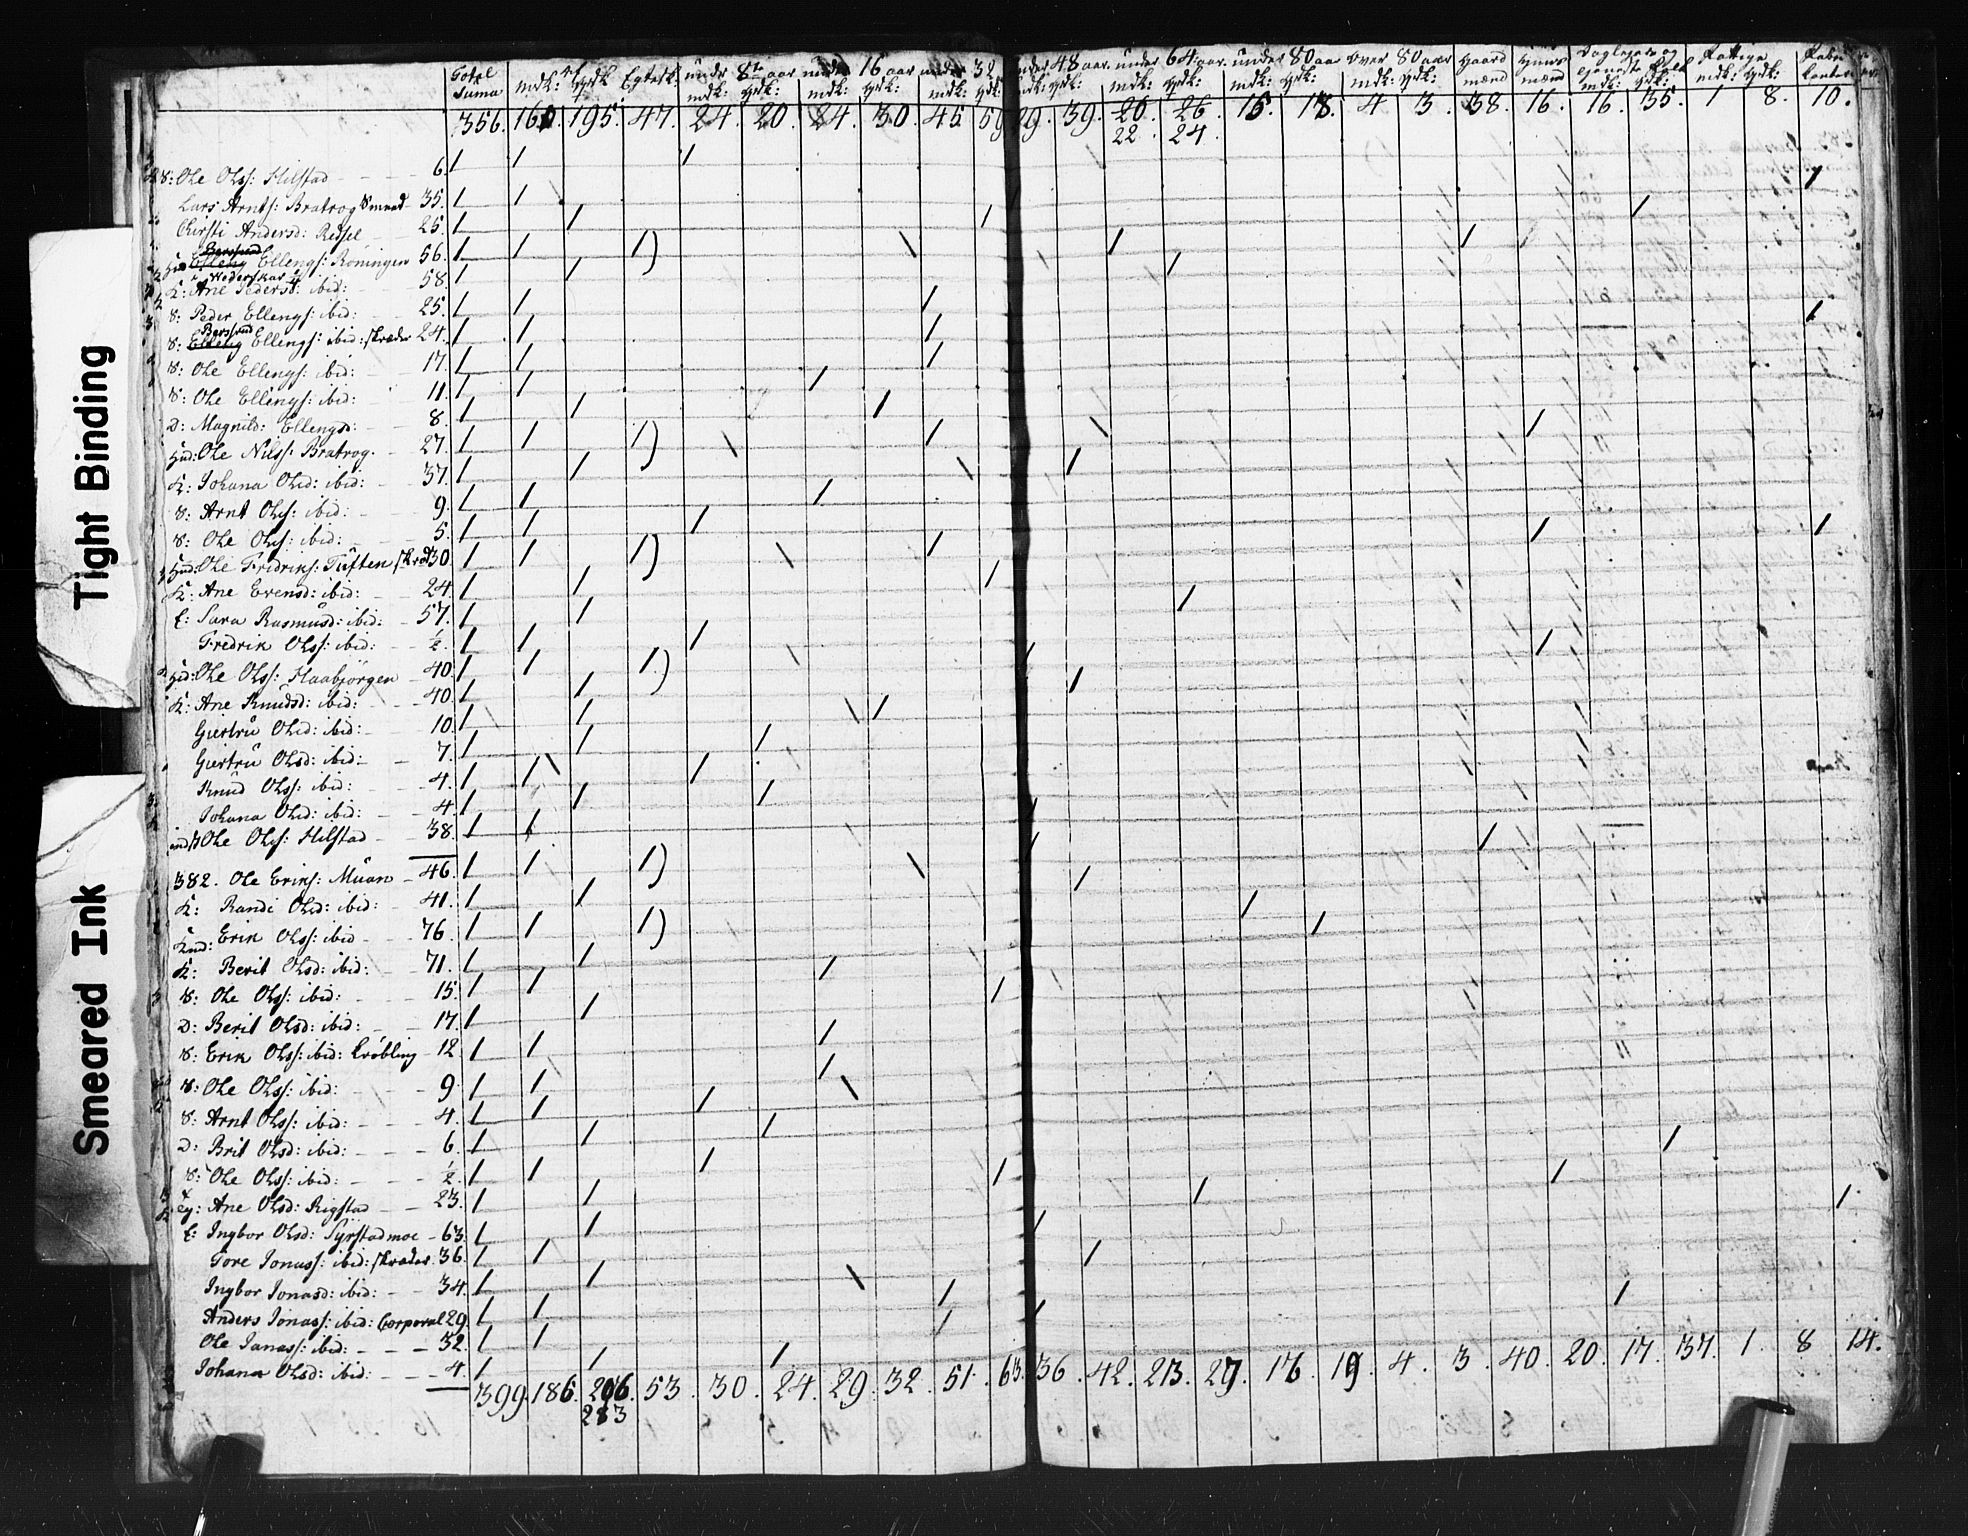 Total Suma | mdk: | qvdk | Egtesk: | under 8te aar mdk: qvdk: | under 16 aar mdk: qvdk: | under 32 mdk: qvdk: | under 48 aar mdk: qvdk: | under 64 aar mdk: qvdk: | under 80 aar mdk: qvdk: | over 80 aar mdk: qvdk: | Gaard mænd | Huus mænd | Daglejere og tjeneste folk mdk: qvdk: | Fattige mdk: qvdk:
356. 160. 195. 47. 24. 20. 24. 30. 45. 59 29. 39. 20. 26. 15. 18. 4 3. 38. 16. 16. 35. 1 8. 10.
22. 24.
8: Ole Olss: Hilstad 6.
Lars Arnts: Bratrog Smed 35.
Kirsti Andersd: Redsel 25.
Bersvend
Elleng Ellengs: Röningen 56.
K: Ane Pedersd: ibid: 58
8: Peder Ellengs: ibid: 25.
Bersvend
8: Elleng Ellengs: ibid: skræder 24.
8: Ole Ellengs: ibid: 17.
8: Ole Ellengs: ibid: 11.
D: Magnild: Ellengsd: 8.
Ole Nilss: Bratrog. 27.
K: Johana Olsd: ibid: 37.
8: Arnt Olss: ibid: 9.
8: Ole Olss: ibid: 5.
Ole Fridriks: Tuften skræd 30.
K: Ane Evensd: ibid: 24.
E: Sara Rasmusd: ibid: 57.
Fredrik Olss: ibid: ½.
Ole Olss: Haabjörgen 40.
K: Ane Knudsd: ibid: 40.
Giertru Olsd: ibid: 10.
Giertru Olsd: ibid: 7.
Knud Olss: ibid: 4.
Johana Olsd: ibid: 4.
Ole Olss: Hilstad 38.
382. Ole Eriks: Muan 46.
K: Randi Olsd: ibid: 41.
Erik Olss: ibid 76.
K: Berit Olsd: ibid: 71.
8: Ole Olss: ibid: 15.
D: Berit Olsd: ibid: 17.
8: Erik Olss: ibid: Kröbling 12
8: Ole Olss: ibid: 9.
8: Arnt Olss: ibid: 4.
D: Brit Olsd: ibid: 6.
8: Ole Olss: ibid: ½.
Ane Olsd: Rigstad 23.
E: Ingbor Olsd: Syrstadmoe 63.
Tore Jonass: ibid: skræder 36.
Ingbor Jonasd: ibid: 34.
Anders Jonass: ibid: Corporal 29.
Ole Jonass: ibid: 32.
Johana Olsd: ibid: 4.
399. 186. 206. 53. 30. 24. 29. 32. 51. 63. 36. 42. 23. 27. 16. 19. 4. 3. 40. 20. 17. 37. 1. 8 14.
213
Tight Binding
Smeared Ink